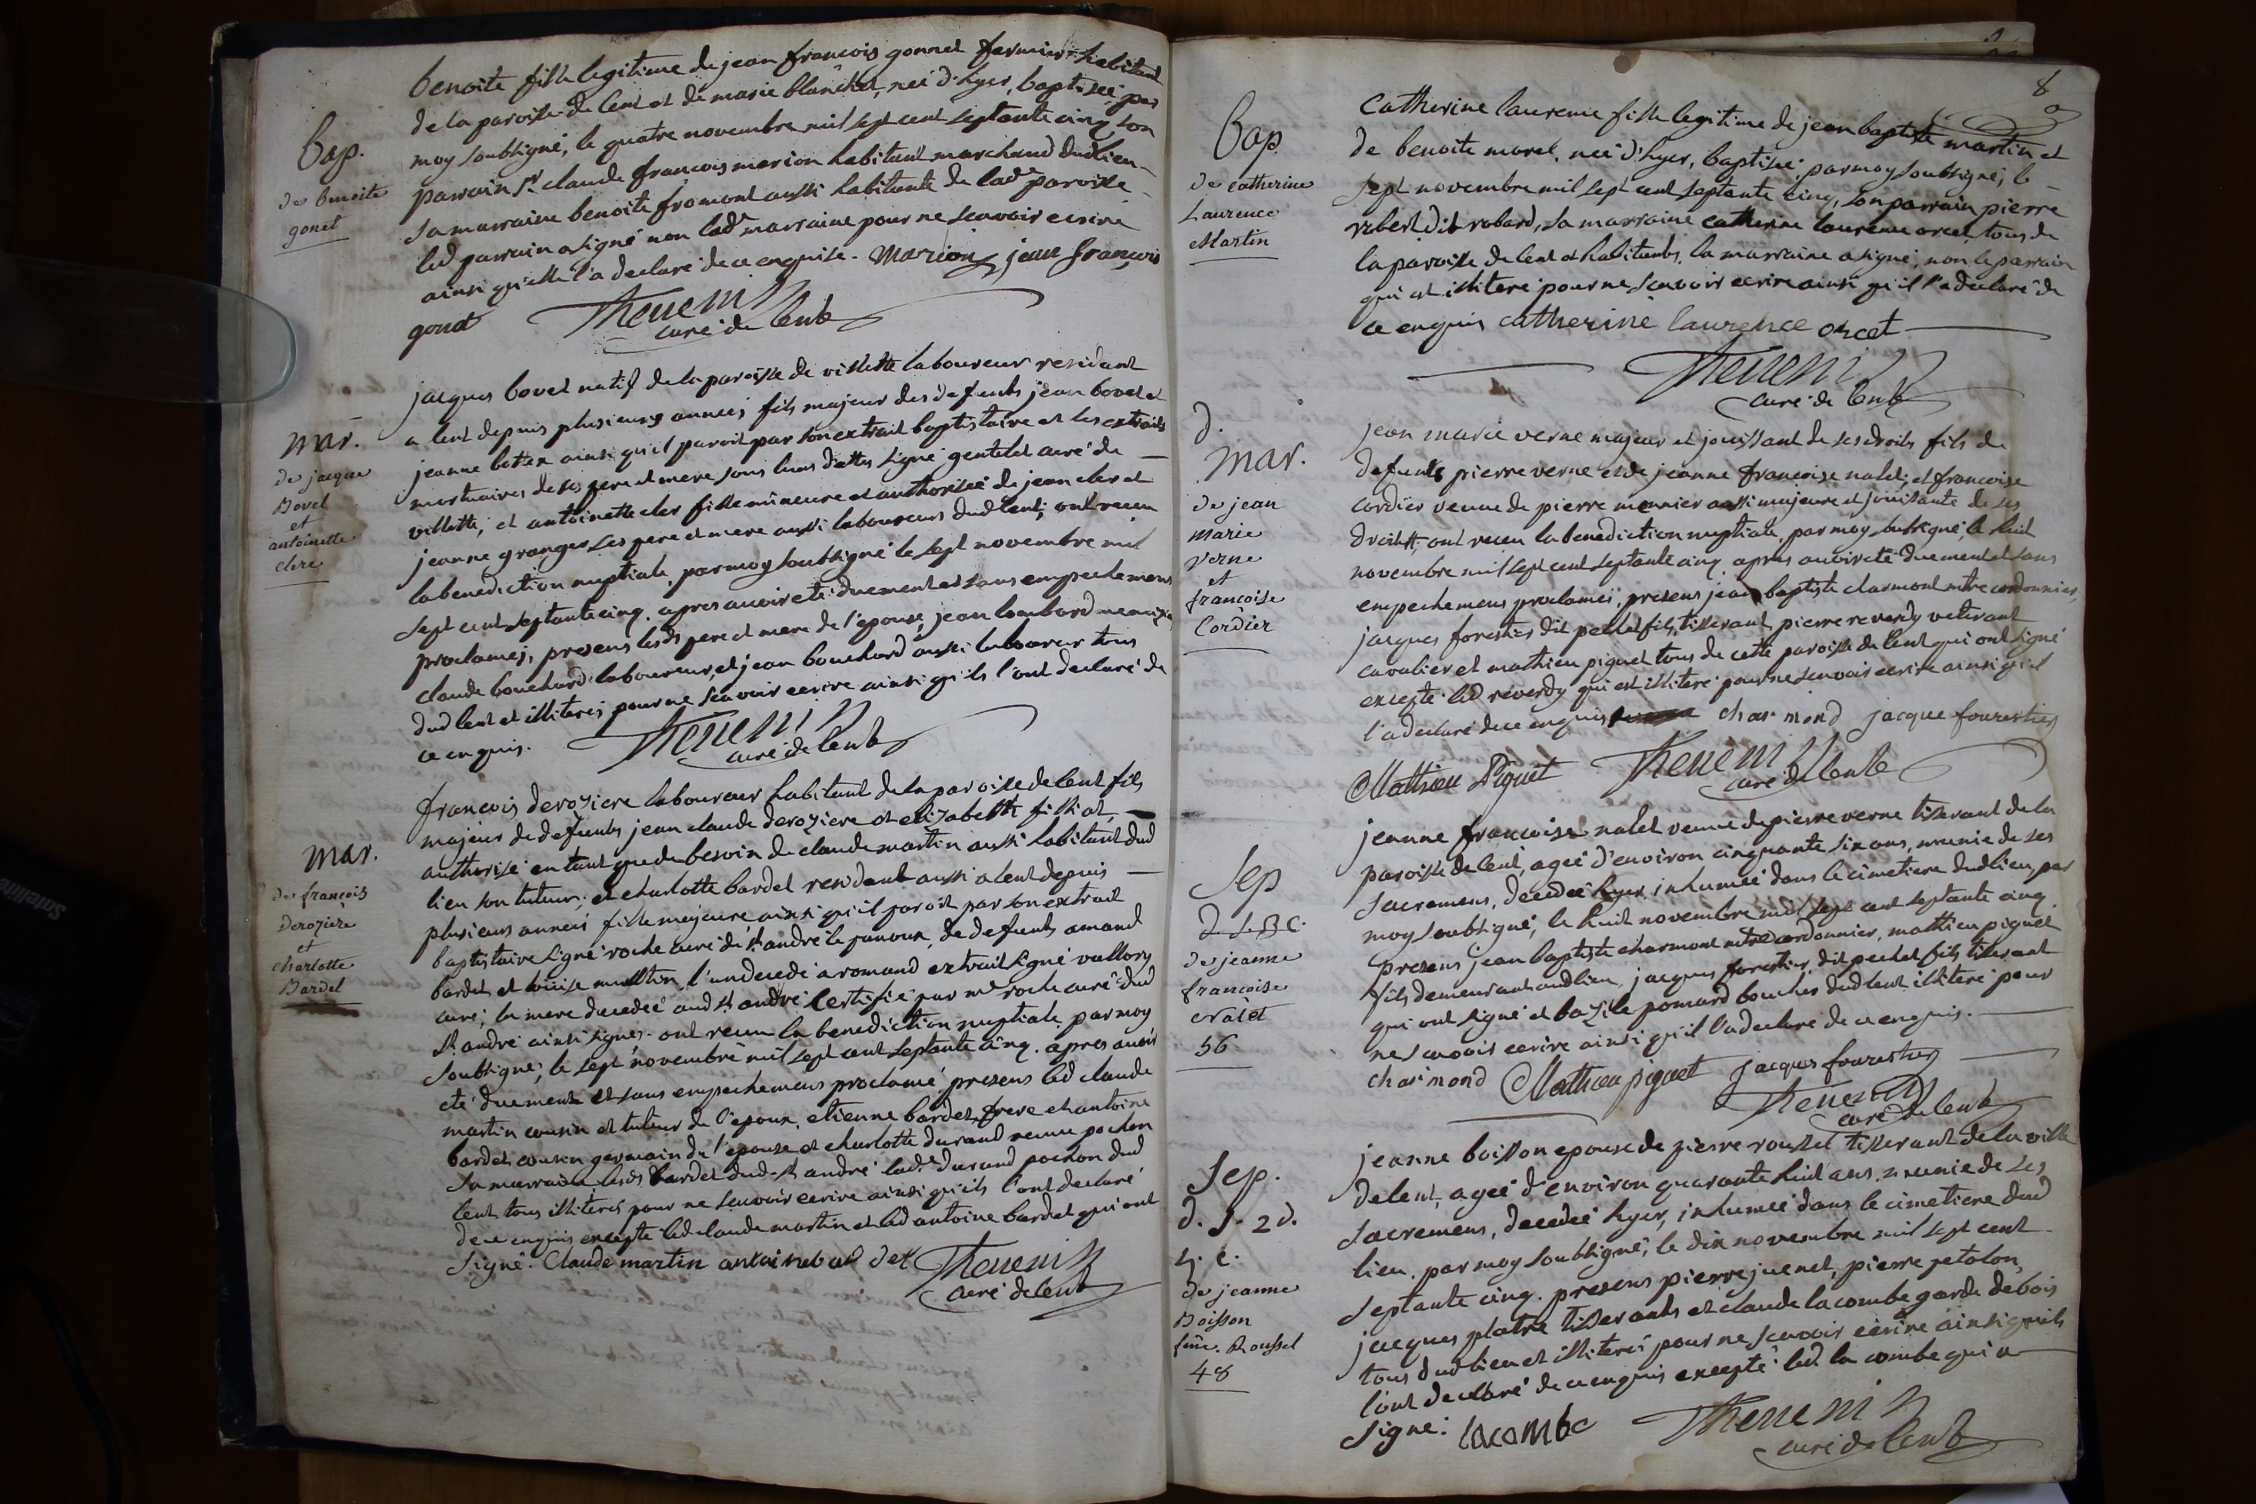 Bap.
de benoite
gonet
benoite fille legitime de jean francois gonnet fermier habitant
de la paroisse de lent et de marie blanchet, neé d'hyer, baptiseé par
moy soubsigné, le quatre novembre mil sept cent septante cinq son
parrain sr claude francois marion habitant marchand dud lieu
sa marraine benoite fromont aussi habitante de lade paroisse
led parrain a signé non lade marraine pour ne scavoir ecrire
ainsi qu'elle l'a declaré de ce enquise. Marion jean francois
gonet Thevenin
curé de lent
Mar.
de jacque
Bovet
et
antoinette
clere
jacques bovet natif de la paroisse de villette laboureur residant
a lent depuis plusieurs anneés fils majeur des defunts jean bovet et
jeanne botex ainsi qu'il paroit par son extrait baptistaire et les extraits
mortuaires de ses pere et mere sous leurs dattes signé gentelet curé de
villette; et antoinette cler fille mineure et authoriseé de jean cler et
jeanne granger ses pere et mere aussi laboureurs dud lent; ont receu
la benediction nuptiale, par moy soubsigné le sept novembre mil
sept cent septante cinq. apres avoir eté duement et sans empechemens
proclamés, presens lesds pere et mere de l'epouse, jean lombard
claude bouchard laboureur, et jean bouchard aussi laboureur tous
dud lent et illiterés pour ne scavoir ecrire ainsi qu'ils l'ont declaré de
ce enquis. Thevenin
curé de lent
Mar.
de françois
deroziere
et
charlotte
Bardet
francois deroziere laboureur habitant de la paroisse de lent fils
majeur de defunts jean claude deroziere et elizabeth filliat
authorisé en tant que de besoin de claude martin aussi habitant dud
lieu son tuteur; et charlotte bardet residant aussi a lent depuis
plusieurs anneés fille majeure, ainsi qu'il paroit par son extrait
baptistaire signé roche curé de st andré le panoux, de defunts amand
bardet et louise mullin, l'un decedé a romand extrait signé vallory
curé; la mere decedeé aud st andré certifié par mr roche curé dud
st andré ainsi signés. ont receu la benediction nuptiale par moy
soubsigné, le sept novembre mil sept cent septante cinq. apres avoir
eté duement et sans empechemens proclamé, presens led claude
martin cousin et tuteur de l'epoux, etienne bardet frere et antoine
bardet cousin germain de l'epouse et charlotte durand veuve pochon
sa marraine lesds bardet dud st andré lade durand pochon dud
lent tous illiterés pour ne scavoir ecrire ainsi qu'ils l'ont declaré
de ce enquis excepté led claude martin et led antoine bardet qui ont
signé. Claude martin antoine bardet Thevenin
curé de lent
8
Bap
de catherine
Laurence
Martin
Catherine laurence fille legitime de jean baptiste martin et
de benoite morel, neé d'hyer, baptiseé par moy soubsigné, le
sept novembre mil sept cent septante cinq, son parrain pierre
robert dit robard, sa marraine catherine laurence orcet tous de
la paroisse de lent et habitants, la marraine a signé, non le parrain
qui est illiteré pour ne scavoir ecrire ainsi qu'il l'a declaré de
ce enquis catherine laurence orcet
Thevenin
curé de lent
d.
Mar.
de jean
marie
verne
et
francoise
Cordier
jean marie verne majeur et jouissant de ses droits fils de
defunts pierre verne et de jeanne francoise nalet; et francoise
cordier veuve de pierre monnier aussi majeure et jouissante de ses
droits; ont receu la benediction nuptiale, par moy soubsigné, le huit
novembre mil sept cent septante cinq. apres avoir eté duement et sans
empechemens proclamés, presens jean baptiste charmont mtre cordonnier,
jacques forestier dit pechet fils, tisserant, pierre reverdy veterant
cavalier et mathieu piquet tous de cette paroisse de lent qui ont signé
excepté led reverdy qui est illiteré pour ne scavoir ecrire ainsi qu'il
l'a declaré de ce enquis charmond jacque fourestier
Mathieu Piquet Thevenin
curé de lent
Sep
d. J. B C.
de jeanne
francoise
56
jeanne francoise nalet veuve de pierre verne tisserant de la
paroisse de lent, ageé d'environ cinquante six ans, munie de ses
sacremens, decedeé hyer, inhumeé dans le cimetiere dud lieu, par
moy soubsigné, le huit novembre mil sept cent septante cinq.
presens jean baptiste charmont mtre cordonnier, mathieu piquet
fils demeurant aud lieu, jacques forestier dit pechet fils tisserant
qui ont signé et bazile pomard boucher dud lent illiteré pour
ne scavoir ecrire ainsi qu'il l'a declaré de ce enquis.
charmond Mathieu piquet jacques fourestier
Thevenin
curé de lent
Sep.
d. J. 2 d.
L. C.
de jeanne
Boisson
fme. Roussel
48
jeanne boisson epouse de pierre roussel tisserant de la ville
de lent, ageé d'environ quarante huit ans, munie de ses
sacremens, decedeé hyer, inhumeé dans le cimetiere dud
lieu. par moy soubsigné, le dix novembre mil sept cent
septante cinq. presens pierre juenet, pierre petolon,
jacques platre tisserants et claude lacombe garde de bois
tous dud lieu et illiterés pour ne scavoir ecrire ainsi qu'ils
l'ont declaré de ce enquis excepté led. la combe qui a
signé: lacombe Thevenin
curé de lent